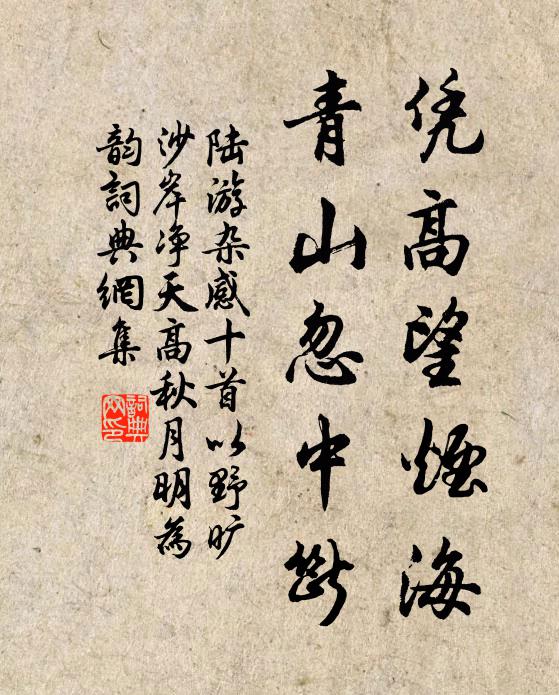 凭高望烟海
青山忽中断
陆游杂感十首以野旷
沙岸净天高秋月明為
韵詞典網集
詞典網印